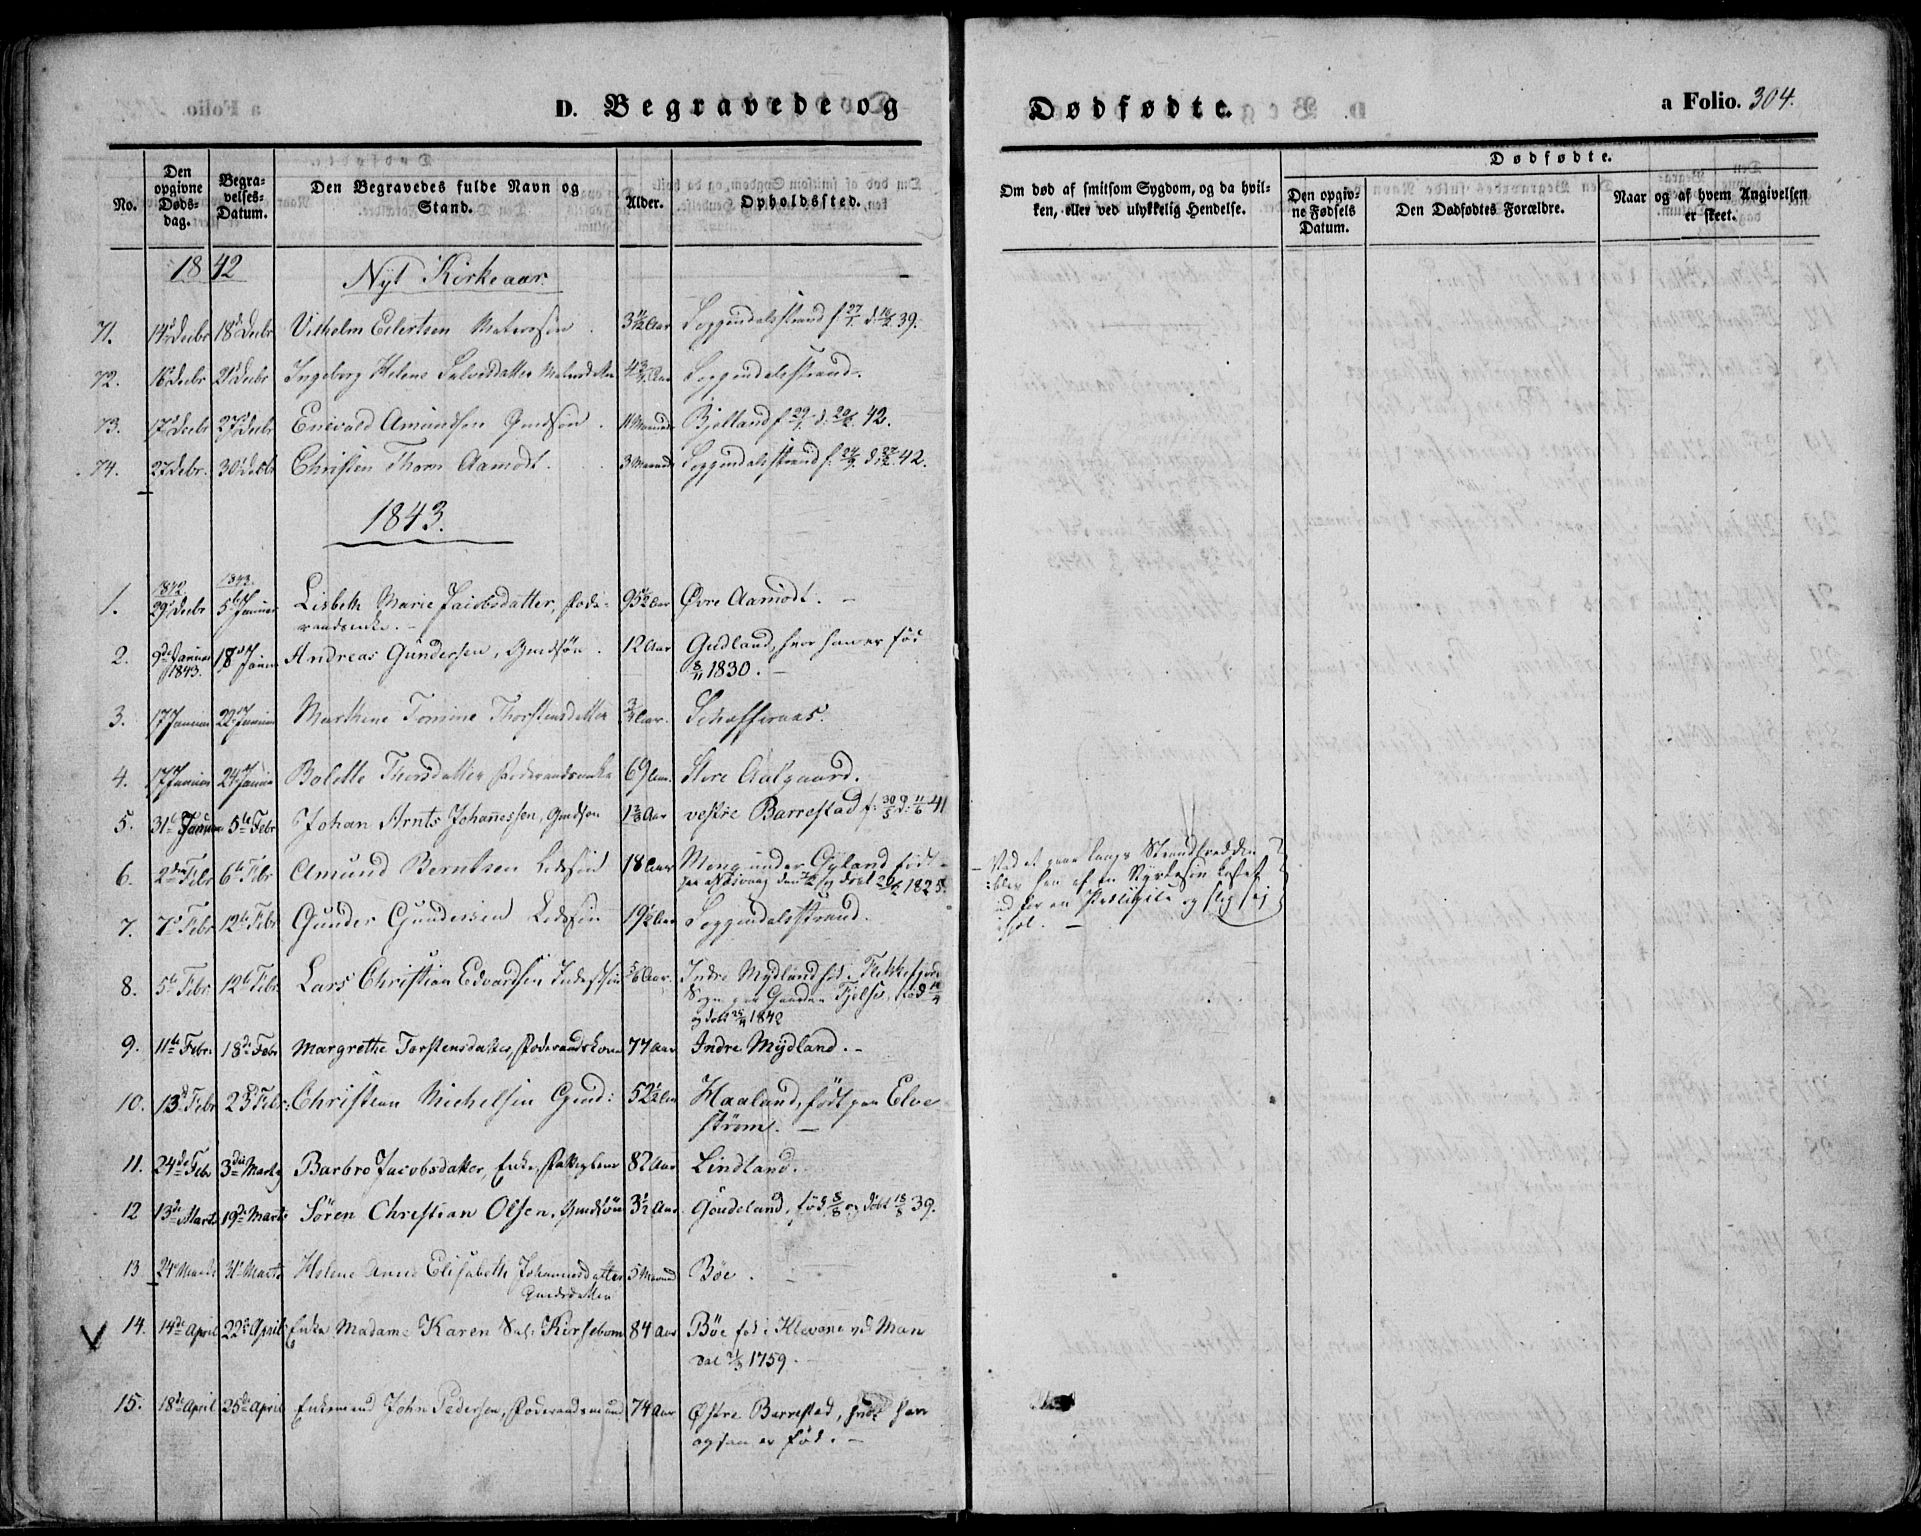 D. Begravede og Dødfødte. a Folio. 304.
No.
Den opgivne Døds-dag.
Begra-velses-Datum.
Den Begravedes fulde Navn og Stand.
Alder.
Opholdssted.
Om død af smitsom Sygdom, og da hvil-ken, eller ved ulykkelig Hendelse.
Dødfødte.
Den opgiv-ne Fødsels Datum.
Den Dødfødtes Forældre.
Naar og af hvem Angivelsen er skeet.
1842 Nyt Kirkeaar.
71. 14 Decbr 18 Decbr Vilhelm Eilertsen 3 1/2 Aar Soggendalsstrand 39.
72. 16 Decbr 21 Decbr Ingeborg Helene Soggendalsstrand.
73. 17 Decbr 27 Decbr Enevald Amundsen 11 Maaneder Bjelland 42.
74. 27 Debr. 30 Debr Christen Thom Aamodt. 3 Maaneder Soggendalsstrand 42.
1843.
1. 1842 29 Decbr 1843. 5te Januar Lisbeth Marie Jacobsdatter, Føde-
raadsenke. 95 1/2 Aar Øvre Aamodt. -
2. 9de Januar 1843. 18 Januar Andreas Gundersen, Gmdsøn. 12 Aar Gudland, hvor han er fød
8/11 1830. -
3. 17 Januar 22 Januar Marthine Tomine Thorstensdatter 3/4 Aar.
4. 17 Januar 24 Januar Bolette Thorsdatter Føderaadsenke 69 Aar. Store Aalgaard.
5. 31te Januar 5te Febr Johan Arnts Johannessen, Gmdsøn 1 2/3 Aar vestre Barrestad f: 30/5 d: 11/6 41
6. 2den Febr 6te Febr Amund Berntsen 18 Aar Mong under Gyland født
1825.
7. 7 Febr 12te Febr Gunder Gundersen 19 1/2 Aar Soggendalsstrand.
8. 5te Febr 12te Febr Lars Christian Edvardsen Aar. Indre Mydland fød i Flekkefjords
Sogn paa Gaarden Fjelse, fød
og døbt 1842
9. 11te Febr. 18de Febr Margrethe Torstensdatter, Føderaadskone 77 Aar Indre Mydland. -
10. 13de Febr 23 Febr: Christian Michelsen Gmd: 52 1/2 Aar Haaland, født paa Elve
strøm. -
11. 24de Febr 3die Marts Barbro Jacobsdatter, Enke, Fattiglem 82 Aar Lindland.
12 13de Marts 19de Marts Søren Christian Olsen, Gmdsøn 3 1/2 Aar. Goudeland, fød 8/8 og døbt 18/8 39.
13 24 Marts 31 Marts Helene Anne Elisabeth Johannesdatter
Gmdsdatter 5 Maaned Bøe.
14. 14de April 22de April Enke Madame Karen Sal: Kirsebom 84 Aar Bøe fød i Klevene ved Man
dal 1759.
15. 18de April 25de April Enkemand John Pedersen, Føderaadsmand 74 Aar Østre Barrestad, hvor han
ogsaa er fød. -
Ved at gaae langs Strandbredden
blev han af en kastet
ind og slog sig
ihjel. -